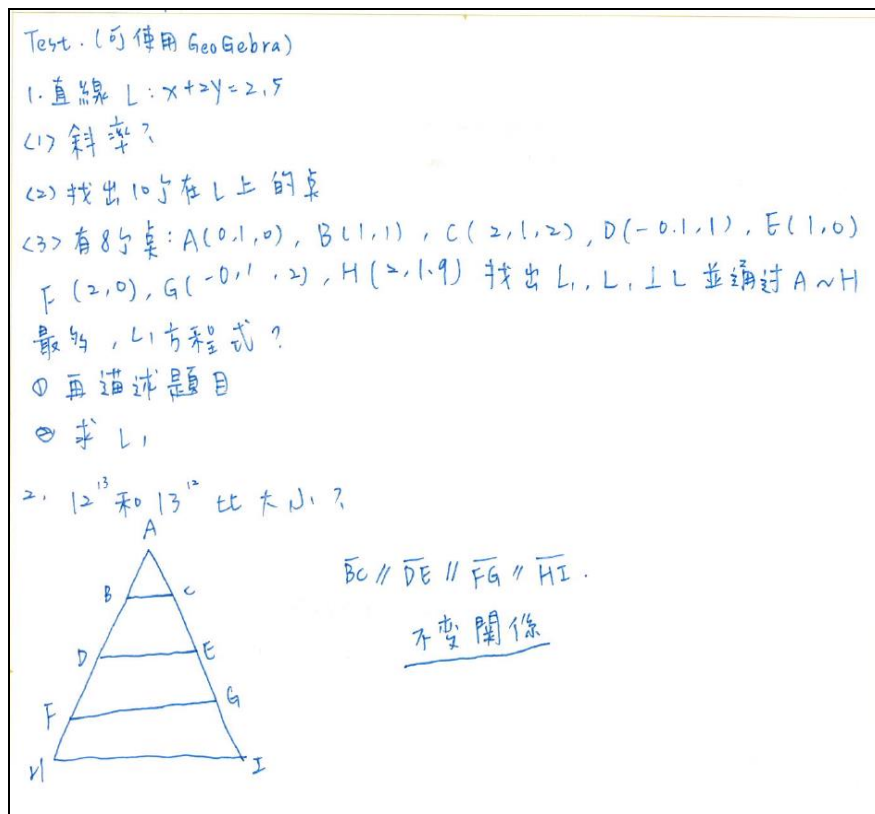 Test.(可使用 GeoGebra)
1.直線 L:x+2y=2.5
<1>斜率?
<2>找出10个在L上的点
<3>有8个点:A(0.1,0), B(1,1), C(2.1,2), D(-0.1,1), E(1,0)
F(2,0), G(-0.1,2), H(2,1.9) 找出L₁, L₁⊥L 並通过A~H
最多, L₁方程式?
① 再描述題目
② 求 L₁
2. 12¹³和13¹² 比大小?
A
B C
D E
F G
H I
BC // DE // FG // HI .
不变關係